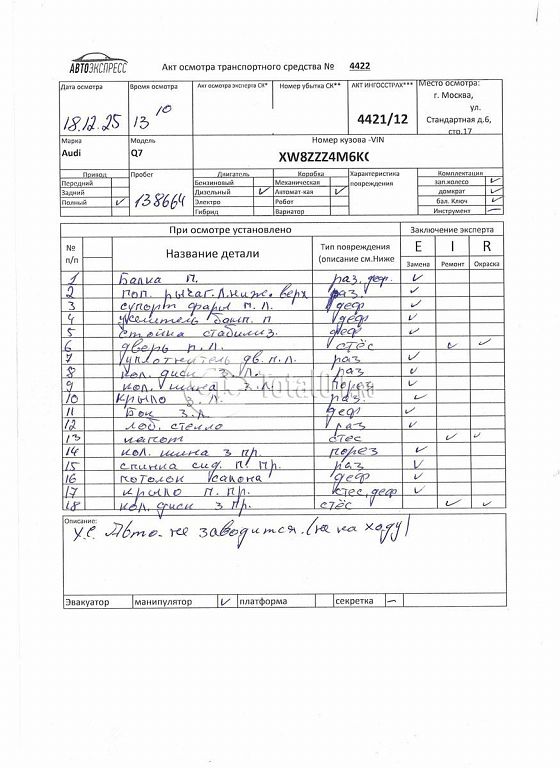 АВТОЭКСПРЕСС
Акт осмотра транспортного средства № 4422
Дата осмотра Время осмотра Акт осмотра эксперта СК* Номер убытка СК** АКТ ИНГОССТРАХ*** Место осмотра:
18.12.25 13 10 4421/12 г. Москва, ул. Стандартная д.6, стр.17
Марка Модель Номер кузова -VIN
Audi Q7 XW8ZZZ4M6K
Привод Пробег Двигатель Коробка Характеристика повреждения Комплектация
Передний 138664 Бензиновый Механическая зап.колесо ✓
Задний Дизельный ✓ Автомат-кая ✓ домкрат ✓
Полный ✓ Электро Робот бал. Ключ ✓
Гибрид Вариатор Инструмент –
При осмотре установлено Заключение эксперта
№ п/п Название детали Тип повреждения (описание см.Ниже E I R
Замена Ремонт Окраска
1 Балка П. раз. деф. ✓
2 поп. рычаг. Л. ниж. верх раз. ✓
3 супорт фары П.Л. деф ✓
4 усилитель бамп. П деф ✓
5 стойка стабилиз. деф ✓
6 дверь П.Л. стёс ✓ ✓
7 уплотнитель дв. П.Л. раз ✓
8 кол. диск З.Л. раз ✓
9 кол. шина З.Л. порез ✓
10 крыло З.Л. раз. ✓
11 Бок З.Л. деф ✓
12 лоб. стекло раз ✓
13 капот стес ✓ ✓
14 кол. шина З пр. порез ✓
15 спинка сид. П. Пр. раз ✓
16 потолок салона деф ✓
17 крыло П. Пр. стес, деф ✓
18 кол. диск З пр. стёс ✓ ✓
Описание:
Авто. не заводится. (не на ходу)
Эвакуатор манипулятор ✓ платформа секретка –